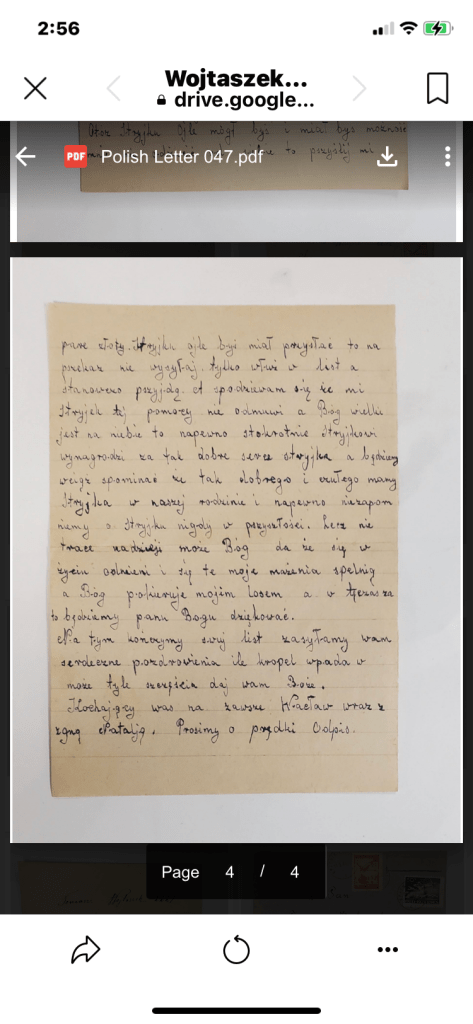 2:56
Wojtaszek...
drive.google...
Otoż Stryjku ojle mógł byś i miał byś możność
to przyślij mi
PDF Polish Letter 047.pdf
pare złoty. Stryjku ojle byś miał przysłać to na
przekaz nie wysyłaj. tylko włuż w list a
stanowczo przyjdą. A spodziewam się że mi
Stryjek tej pomocy nie odmuwi a Bóg wielki
jest na niebie to napewno stokrotnie Stryjkowi
wynagrodzi za tak dobre serce stryjka a będziemy
weigż spominać że tak dobrego i czułego mamy
Stryjka w naszej rodzinie i napewno niezapom
niemy o Stryjku nigdy w przyszłości. Lecz nie
trace nadzieji może Bóg da że się w
życiu odmieni i się te moje mażenia spełnią
a Bóg pokieruje mojim losem a w tęczas za
to będziemy panu Bogu dziękować.
Na tym kończymy swuj list zasyłamy wam
serdeczne pozdrowienia ile kropel wpada w
może tyle szczęścia daj wam Boże.
Kochający was na zawsze Wacław wraz z
żgną Natalją. Prosimy o prędki Odpis.
Page 4 / 4